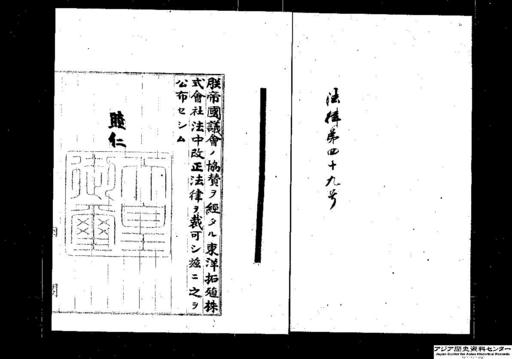 法律第四十九号
朕帝國議會ノ協賛ヲ經タル東洋拓殖株
式會社法中改正法律ヲ裁可シ玆ニ之ヲ
公布セシム
睦仁
アジア歴史資料センター
Japan Center for Asian Historical Records